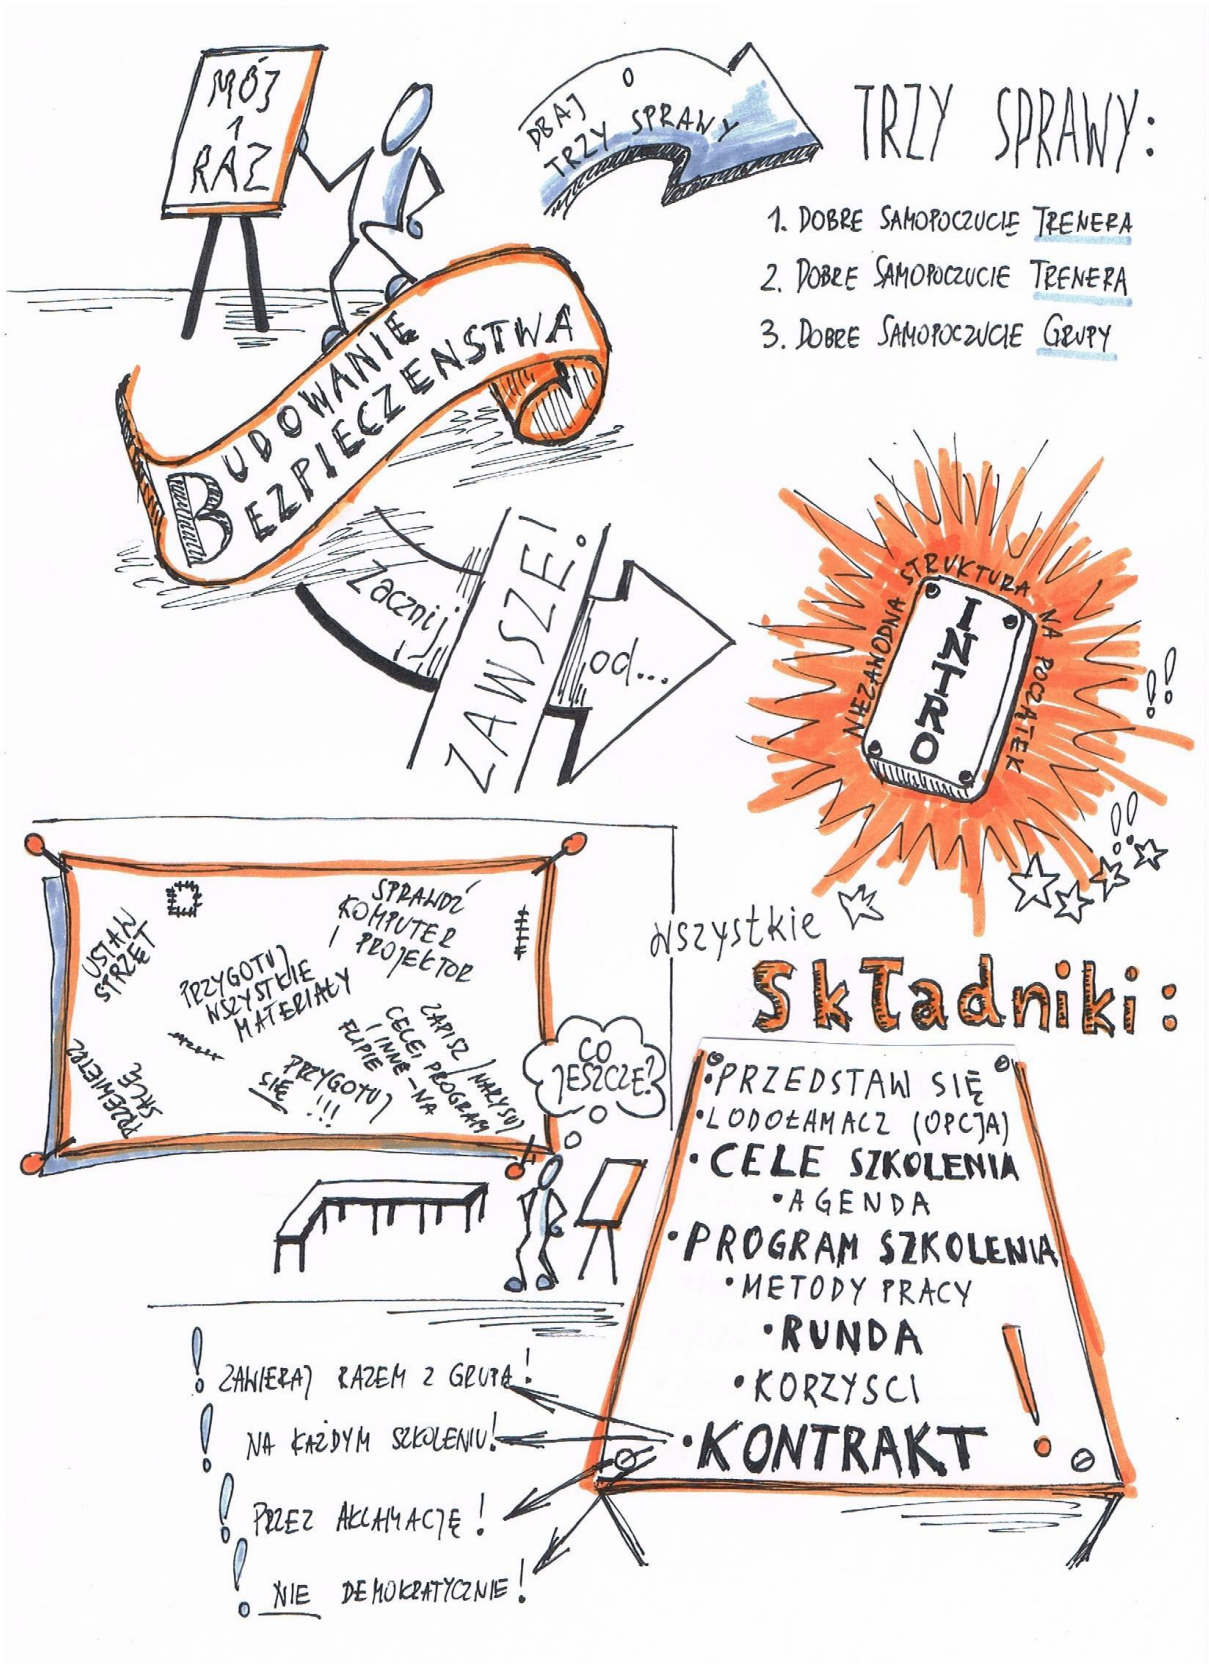 MÓJ
1
RAZ
DBAJ O
TRZY SPRAWY
TRZY SPRAWY:
1. DOBRE SAMOPOCZUCIE TRENERA
2. DOBRE SAMOPOCZUCIE TRENERA
3. DOBRE SAMOPOCZUCIE GRUPY
BUDOWANIE
BEZPIECZEŃSTWA
Zacznij
ZAWSZE!
od...
NIEZAWODNA STRUKTURA NA POCZĄTEK
INTRO
!!
!!
USTAW
SPRZĘT
SPRAWDŹ
KOMPUTER
I PROJEKTOR
PRZYGOTUJ
WSZYSTKIE
MATERIAŁY
ZAPISZ / NARYSUJ
CELE, PROGRAM
I INNE - NA
FLIPIE
PRZEWIETRZ
SALĘ
PRZYGOTUJ
SIĘ !!!
CO
JESZCZE?
wszystkie
Składniki:
• PRZEDSTAW SIĘ
• LODOŁAMACZ (OPCJA)
• CELE SZKOLENIA
• AGENDA
• PROGRAM SZKOLENIA
• METODY PRACY
• RUNDA
• KORZYSCI
• KONTRAKT !
! ZAWIERAJ RAZEM Z GRUPĄ!
! NA KAŻDYM SZKOLENIU!
! PRZEZ AKLAMACJĘ!
! NIE DEMOKRATYCZNIE!